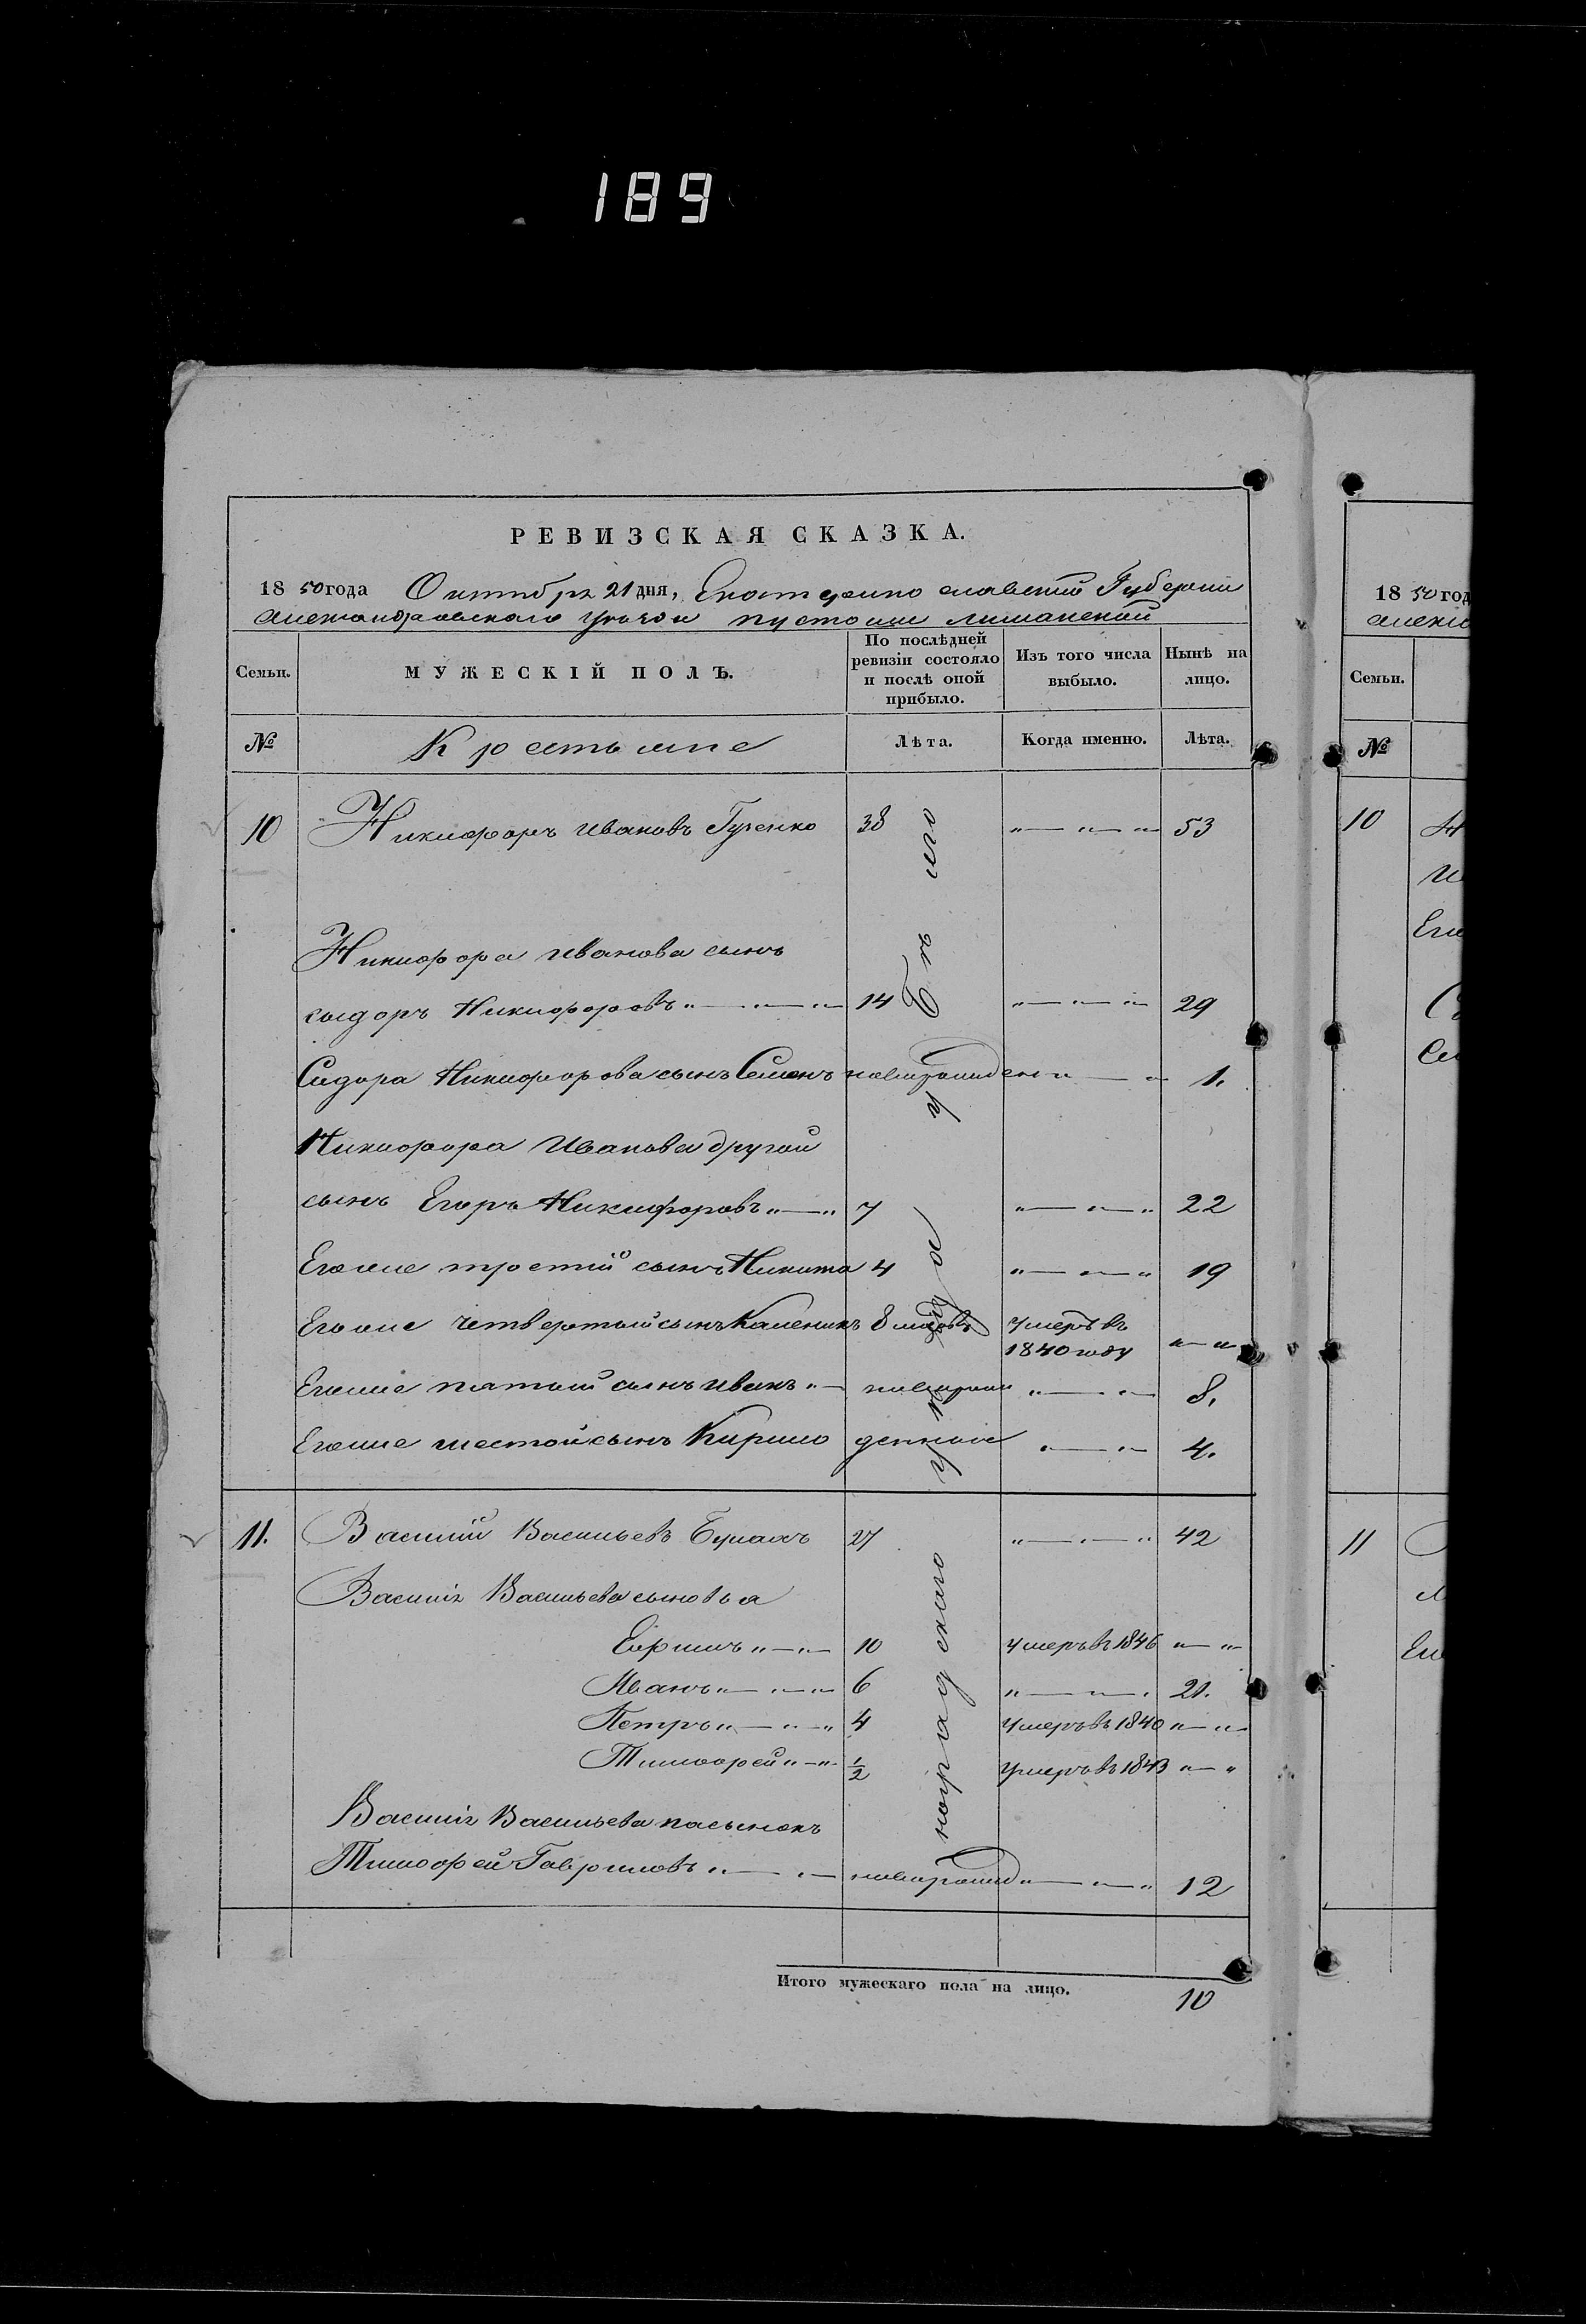 189
РЕВИЗСКАЯ СКАЗКА.
1850 года Октября 21 дня, Екатеринославской Губернии
Александровскаго уѣзда пустоши лиманской
Семьи. МУЖЕСКІЙ ПОЛЪ. По послѣдней ревизіи состояло и послѣ оной прибыло. Изъ того числа выбыло. Нынѣ на лицо.
№ Крестьяне Лѣта. Когда именно. Лѣта.
10 Никифоръ Ивановъ 38 53
Никифора Иванова сынъ
сыдоръ Никифоровъ 14 29
Сидора Никифорова сынъ Семенъ новорожден 1.
Никифора Иванова другой
сынъ Егоръ Никифоровъ 7 22
Егоже третій сынъ Никита 4 19
Егоже четвертый сынъ Каленикъ 8 умеръ въ 1840 году
Егоже пятый сынъ Иванъ новорож 8.
Егоже шестой сынъ Кирило денные 4.
11. Василий Васильевъ 27 42
Василія Васильева сыновья
10 умеръ въ 1846
Иванъ 6 21.
Петръ 4 умеръ въ 1840
Тимофей 1/2 умеръ въ 1843
Василія Васильева пасынокъ
Тимофей Гавриловъ новорожд 12
Итого мужескаго пола на лицо.
10
18 50 год
Семьи.
№
10
11